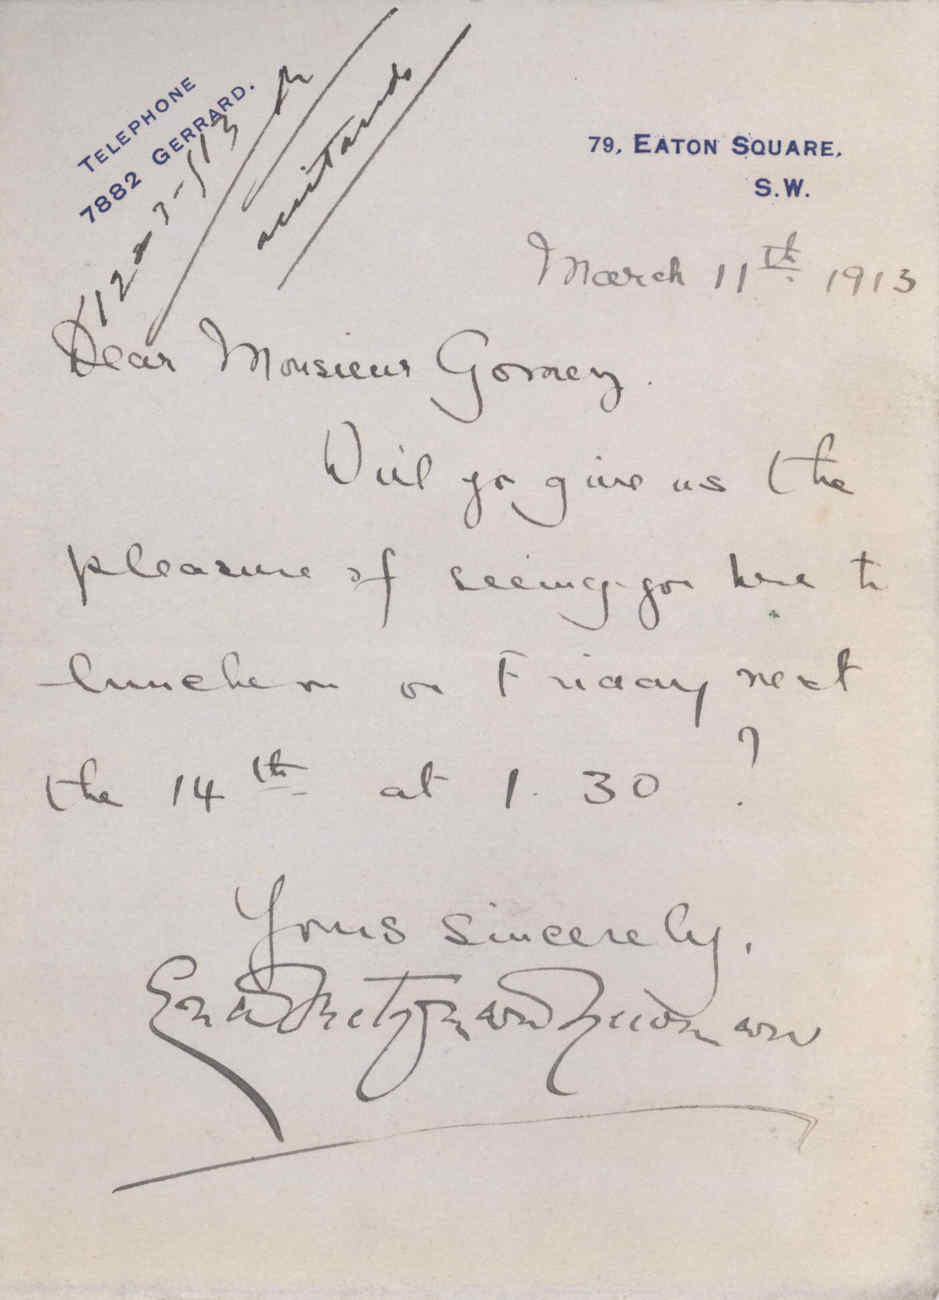 TELEPHONE
7882 GERRARD.
12-3-913 R
aceitando
79, EATON SQUARE,
S.W.
March 11th 1913
Dear Monsieur Gomez.
Will you give us the
pleasure of seeing you here to
luncheon on Friday next
the 14th at 1.30 ?
Yours sincerely,